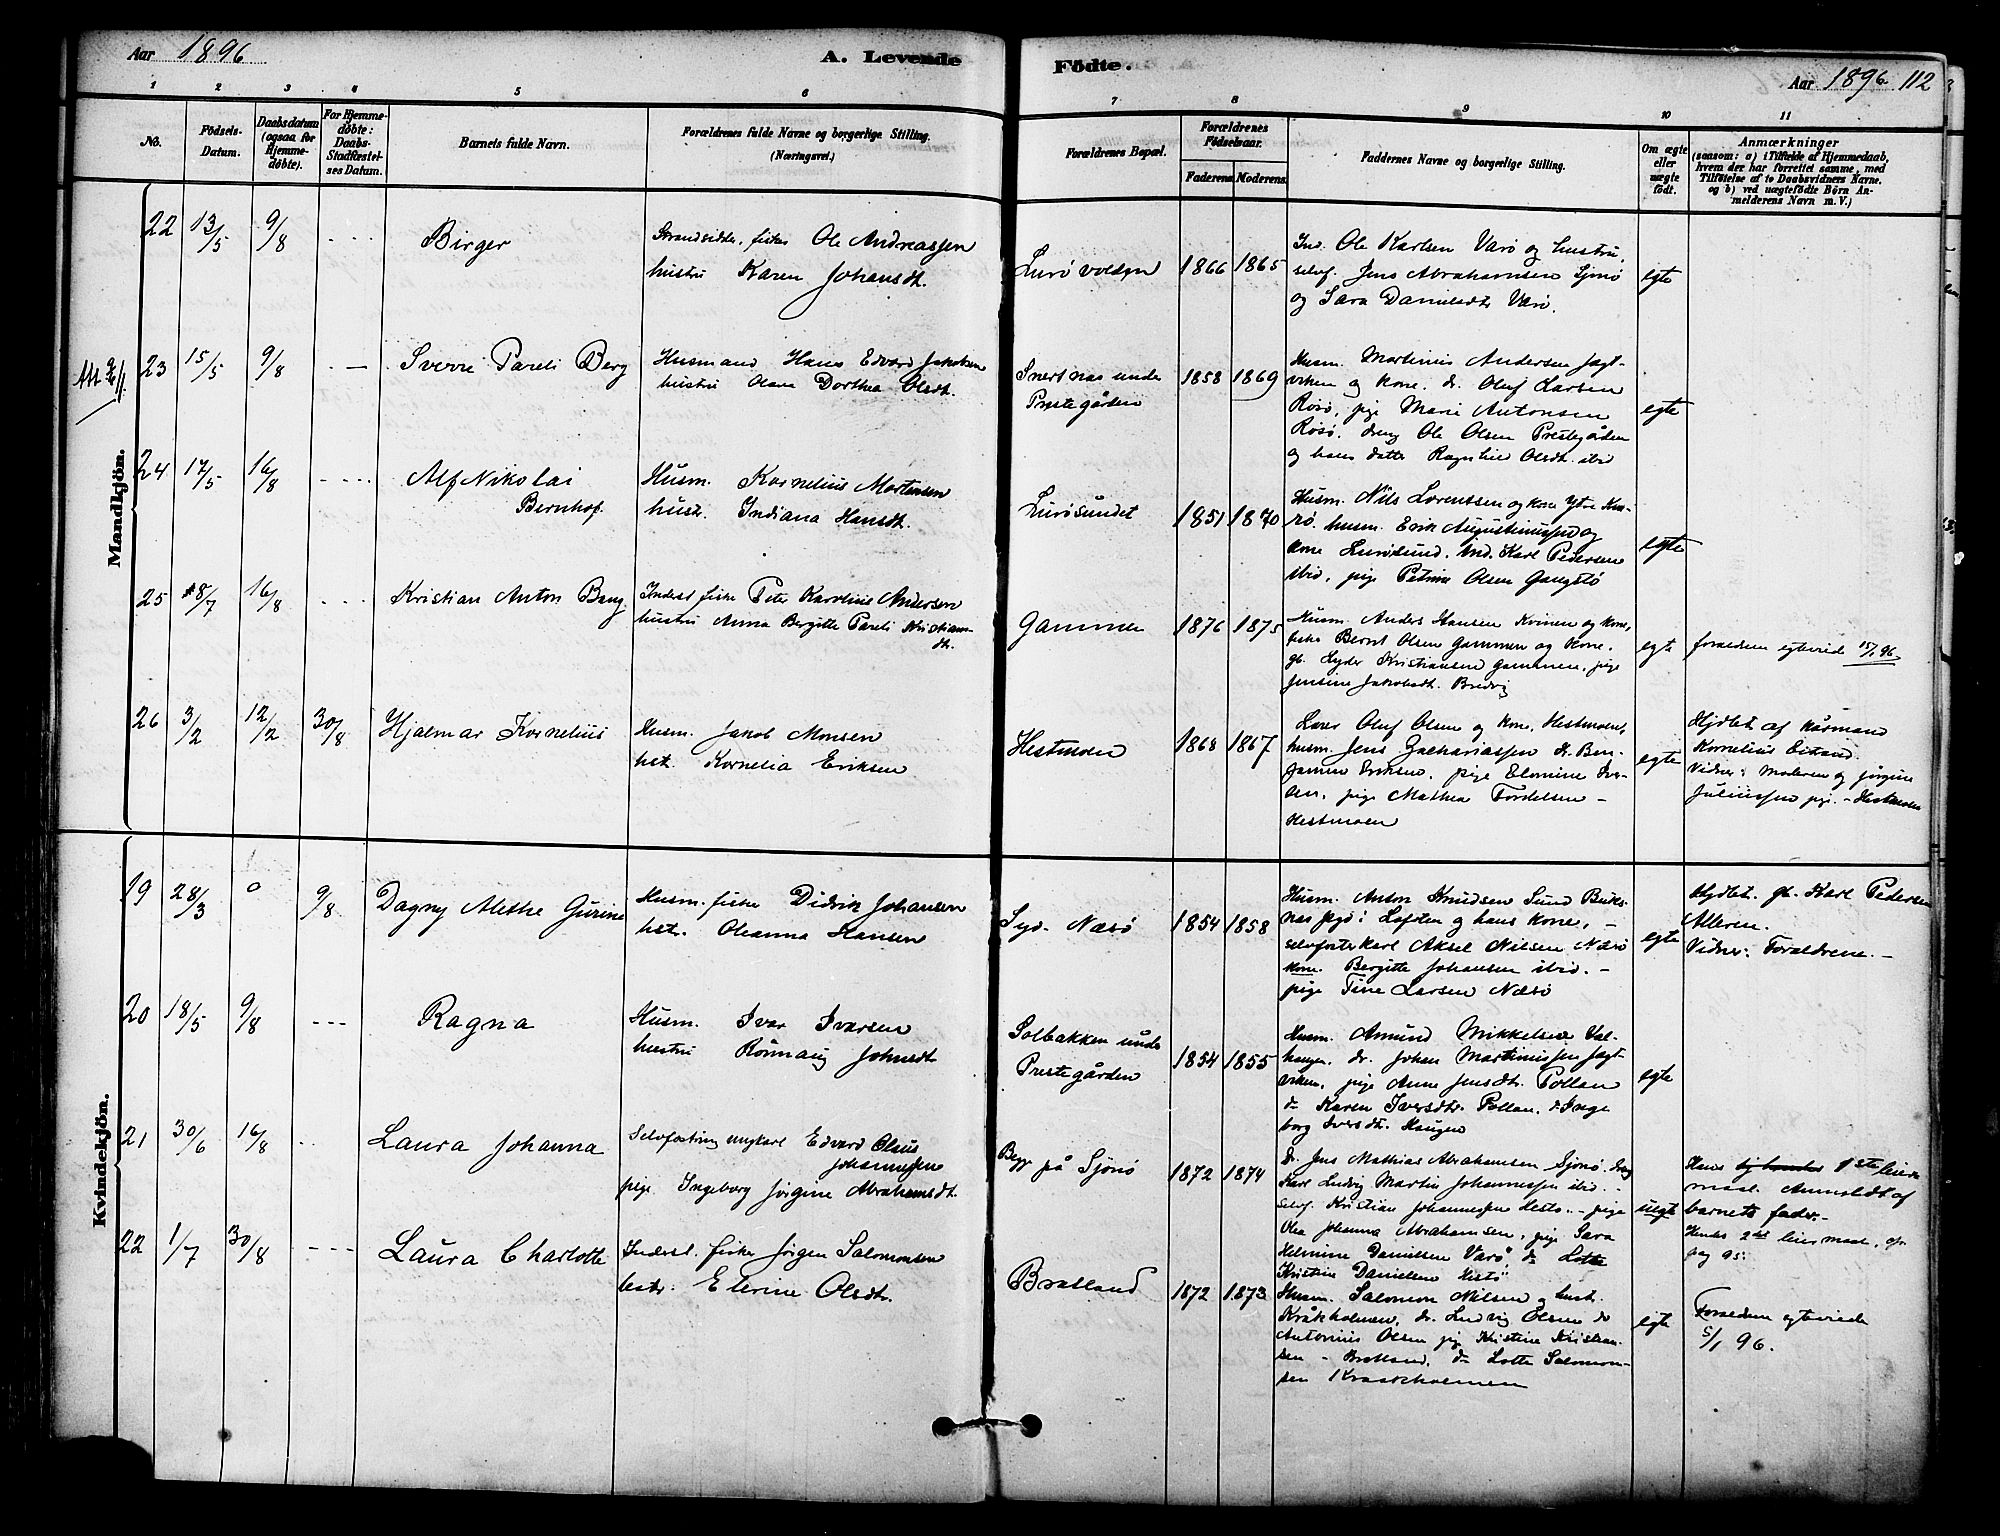 Aar 1896
A. Levende
Födte.
Aar 1896 112
1 2 3 4 5 6 7 8 9 10 11
No.
Födsels-
Datum.
Daabsdatum
(ogsaa for
Hjemme-
döbte).
For Hjemme-
döbte:
Daabs-
Stadfæstel-
ses Datum.
Barnets fulde Navn.
Forældrenes fulde Navne og borgerlige Stilling.
(Næringsvei.)
Forældrenes Bopæl.
Forældrenes
Födselsaar.
Faderens. Moderens.
Faddernes Navne og borgerlige Stilling.
Om ægte
eller
uægte
födt.
Anmærkninger
(saasom: a) i Tilfælde af Hjemmedaab,
hvem der har forrettet samme, med
Tilföielse af to Daabsvidners Navne,
og b) ved uægtefödte Börn An-
melderens Navn m. V.)
Mandkjön.
22 13/5 9/8
Birger
Strandsidder, fisker Ole Andreassen
hustru Karen Johansdt.
Lurövolden
1866 1865
Ind. Ole Karlsen Varö og hustru,
selvf. Jens Abrahamsen Sjonö
og Sara Danielsdtr Varö.
egte
23 15/5 9/8
Sverre Pareli Berg
Husmand Hans Edvard Jakobsen
hustru Olava Dorthea Olsdt.
Snertnas under
Prestegården
1858 1869
Husm. Martinus Andersen Jagt-
viken og kone, dr. Oluf Larsen
Rösö, pige Marie Antonsen
Rösö, dreng Ole Olsen Prestegården
og hans datter Ragnhild Olsdt. ibid
egte
24 17/5 16/8
Alf Nikolai
Bernhof.
Husm. Kornelius Mortensen
hustr. Indiana Hansdt.
Lurösundet
1851 1870
Husm. Nils Lorentsen og kone Ytre Kva-
rö, husm. Erik Augustinussen og
kone Lurösund, Ind. Karl Pedersen
ibid, pige Petrine Olsen Gangstö
egte
25 8/7 16/8
Kristian Anton Bang
Inderst fisker Peter Karolius Andersen
hustru Anna Bergitte Pareli Kristians-
dt.
Gammen
1876 1875
Husm. Anders Hansen Kvinen og kone,
fisker Bernt Olsen Gammen og kone,
gb. Lyder Kristiansen Gammen, pige
Jensine Jakobsdt. Bredvig
egte
forældrene egteviede 15/1 96
26 3/2 12/2 30/8
Hjalmar Kornelius
Husm. Jakob Monsen
hst. Kornelia Eriksen
Hestmoen
1868 1867
Lærer Oluf Olsen og kone, Hestmoens,
husm. Jens Zachariassen dr. Ben-
jamin Eriksen, pige Elomine Iver-
sen, pige Mathea Tordelsen –
Hestmoen
egte
Hjdbt. af kårmand
Kornelius
Vidner: Moderen og Jörgine
Juliussen pige. – Hestmoen
Kvindekjön.
19 28/3 0 9/8
Dagny Alethe Gurine
Husm. fisker Didrik Johansen
hst. Oleanna Hansen
Syd-Næsö
1854 1858
Husm. Anton Knudsen Sund Buks-
nasfjord i Lofoten og hans kone, –
selvforst. karl Aksel Nilsen Næsö
kone Bergitte Johansen ibid. –
pige Tine Larsen Næsö
egte
Hjdbt. gb. Karl Pedersen
Alleren.
Vidner: Foraldrene. –
20 18/5 9/8
Ragna
Husm. Ivar Ivarsen
hustru Rönnaug Johnsdt
Solbakken under
Prestegården
1854 1855
Husm. Amund Mikkelsen Val-
haugen, dr. Johan Martinussen Jagt-
viken, pige Anne Jensdtr. Pollan
do Karen Iversdtr. Pollan, do Inge
borg Iversdtr. Haugen
egte
21 30/6 16/8
Laura Johanna
Selvforstring ungkarl Edvard Olaus
Johannessen
pige Ingeborg Jörgine Abrahamsdt.
Begge på Sjonö
1872 1874
Dr. Jens Mathias Abrahamsen Sjonö, dreng
Karl Ludvig Martin Johannessen ibid. –
selvf. Kristian Johannessen Hestö. – pige
Olea Johanna Abrahamsen, pige Sara
Helmine Danielsen Varö, do Lotte
Kristine Danielsen Hestö
uegte
Hans 1ste leier-
maal. Anmeldt af
barnets fader. –
Hendes 2det leiermaal, cfr
pag 95.
22 1/7 30/8
Laura Charlotte
Inderst. fisker Jörgen Salomonsen
hstr. Elerine Olsdtr.
Bratland
1872 1873
Husm. Salomon Nilsen og hust.
Kråkholmen, dr. Ludvig Olsen do
Antonius Olsen pige Kristine Kristian-
sen – Bratland, do Lotte Salomon-
sen Kraakholmen
egte
Forældrene egteviede
5/1 96.